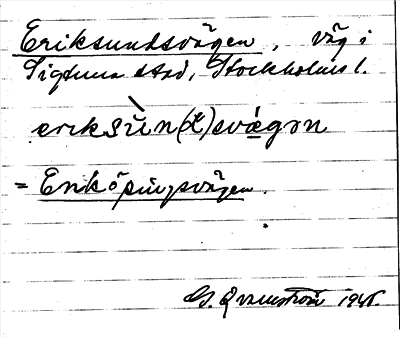 Eriksundsvägen, väg i
Sigtuna stad, Stockholms l.
eriksùn(t)svǽgən
= Enköpingsvägen.
G. Qvarnström 1946.